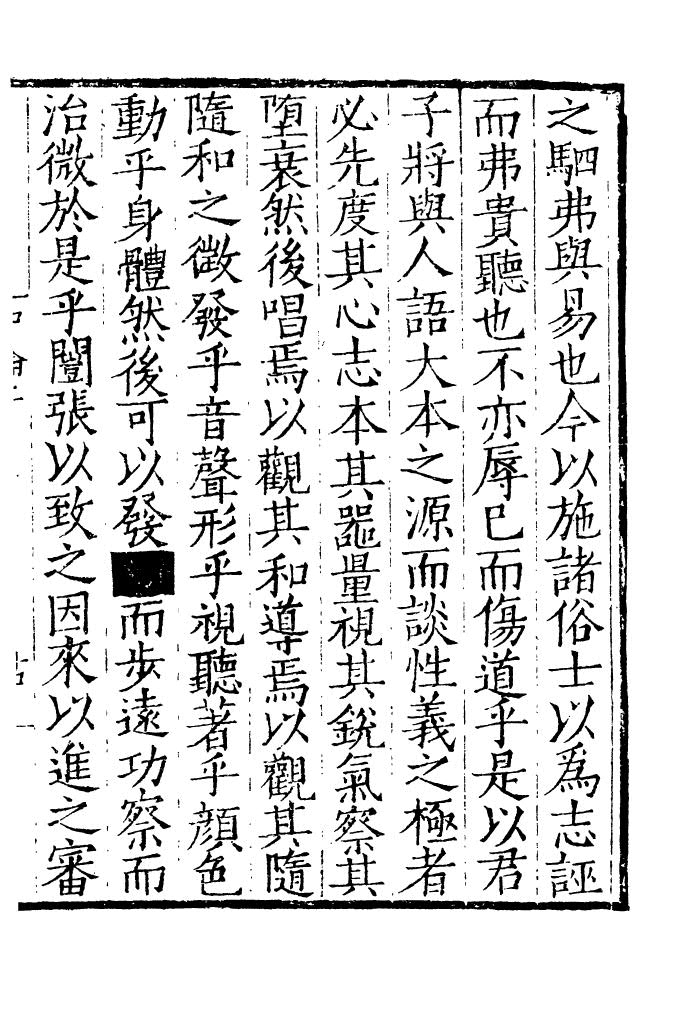 之駟弗與易也今以施諸俗士以爲志誣
而弗貴聽也不亦辱己而傷道乎是以君
子將與人語大本之源而談性義之極者
必先度其心志本其器量視其銳氣察其
墮衰然後唱焉以觀其和導焉以觀其隨
隨和之徵發乎音聲形乎視聽著乎顔色
動乎身體然後可以發而步遠功察而
治微於是乎闓張以致之因來以進之審